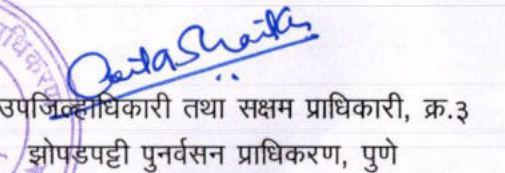 उपजिल्हाधिकारी तथा सक्षम प्राधिकारी, क्र.३
झोपडपट्टी पुनर्वसन प्राधिकरण, पुणे